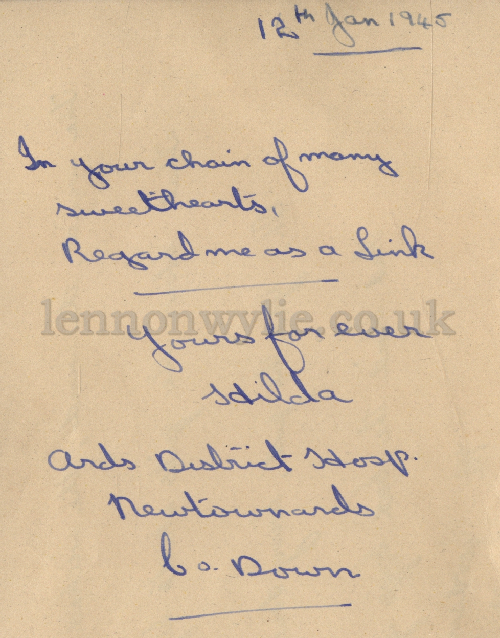 12th Jan 1945
In your chain of many
sweethearts,
Regard me as a Link
lennonwylie.co.uk
Yours for ever
Hilda
Ards District Hosp.
Newtownards
Co. Down